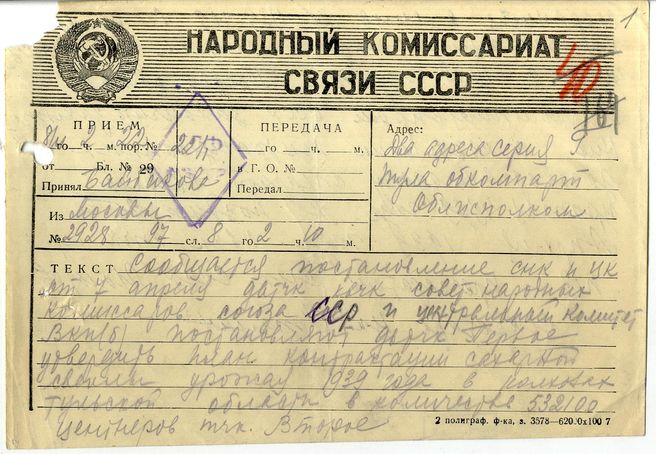 1
НАРОДНЫЙ КОМИССАРИАТ
СВЯЗИ СССР
ПРИЕМ
го ч. м. пор. №
от Бл. № 29
Принял
Из Москвы
№ 2928 97 сл. 8 го 2 ч. 10 м.
ПЕРЕДАЧА
го ч. м.
в Г. О. №
Передал
Адрес:
Два адреса серия
Тула обкомпарт
Облисполком
ТЕКСТ Сообщается постановление снк и цк
от 7 апреля двтчк совет народных
комиссаров союза ССР и центральный комитет
ВКП(б) постановляют двтчк Первое
утвердить план контрактации сахарной
свеклы урожая 1939 года в колхозах
тульской области в количестве 532100
центнеров тчк. Второе
2 полиграф. ф-ка, з. 3578—620.0x100 7